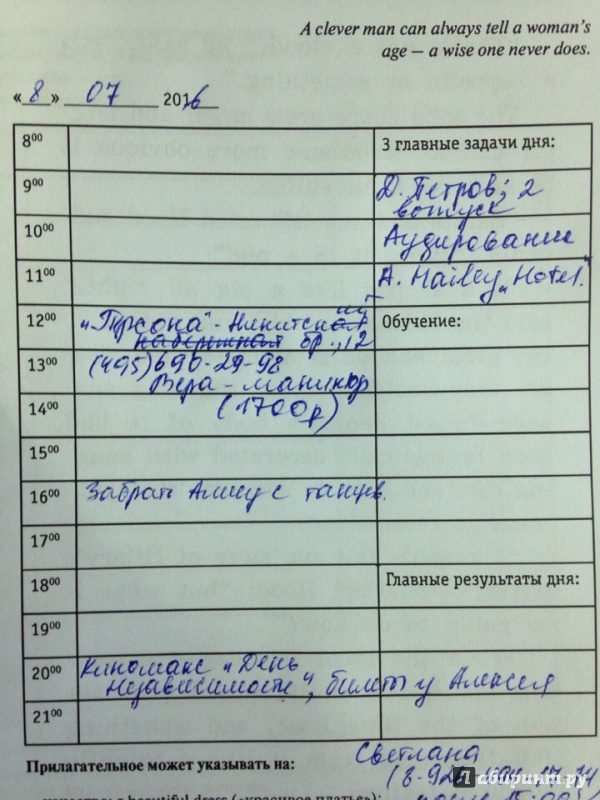 A clever man can always tell a woman's
age — a wise one never does.
« 8 » 07 2016
8⁰⁰
3 главные задачи дня:
9⁰⁰
Д. Петров; 2
выпуск
10⁰⁰
Аудирование
11⁰⁰
A. Hailey „Hotel."
12⁰⁰
„Персона" - Никитский
набережная бр., 12
Обучение:
13⁰⁰
(495) 690-29-98
Вера - маникюр
14⁰⁰
(1700р)
15⁰⁰
16⁰⁰
Забрать Алису с танцев.
17⁰⁰
18⁰⁰
Главные результаты дня:
19⁰⁰
20⁰⁰
Киномакс „День
Независимости", билеты у Алексея
21⁰⁰
Светлана
Прилагательное может указывать на:
a beautiful dress («красивое платье»);
Лабиринт.ру